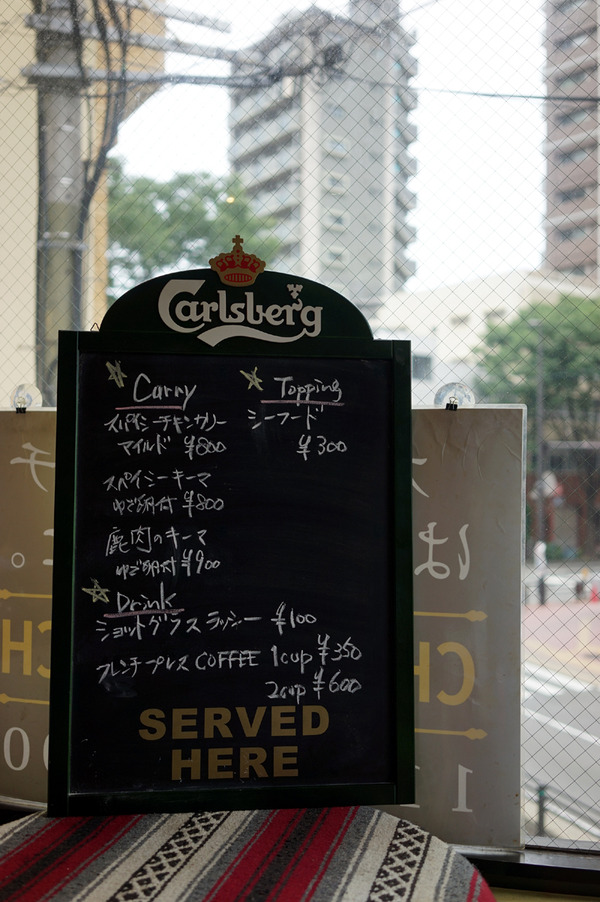 Carlsberg
Curry
スパイシーチキンカリー
マイルド ¥800
スパイシーキーマ
ゆで卵付 ¥800
鹿肉のキーマ
ゆで卵付 ¥900
Topping
シーフード
¥300
Drink
ショットグラスラッシー ¥100
フレンチプレス COFFEE 1cup ¥350
2cup ¥600
SERVED
HERE
チ
は
CH
CH